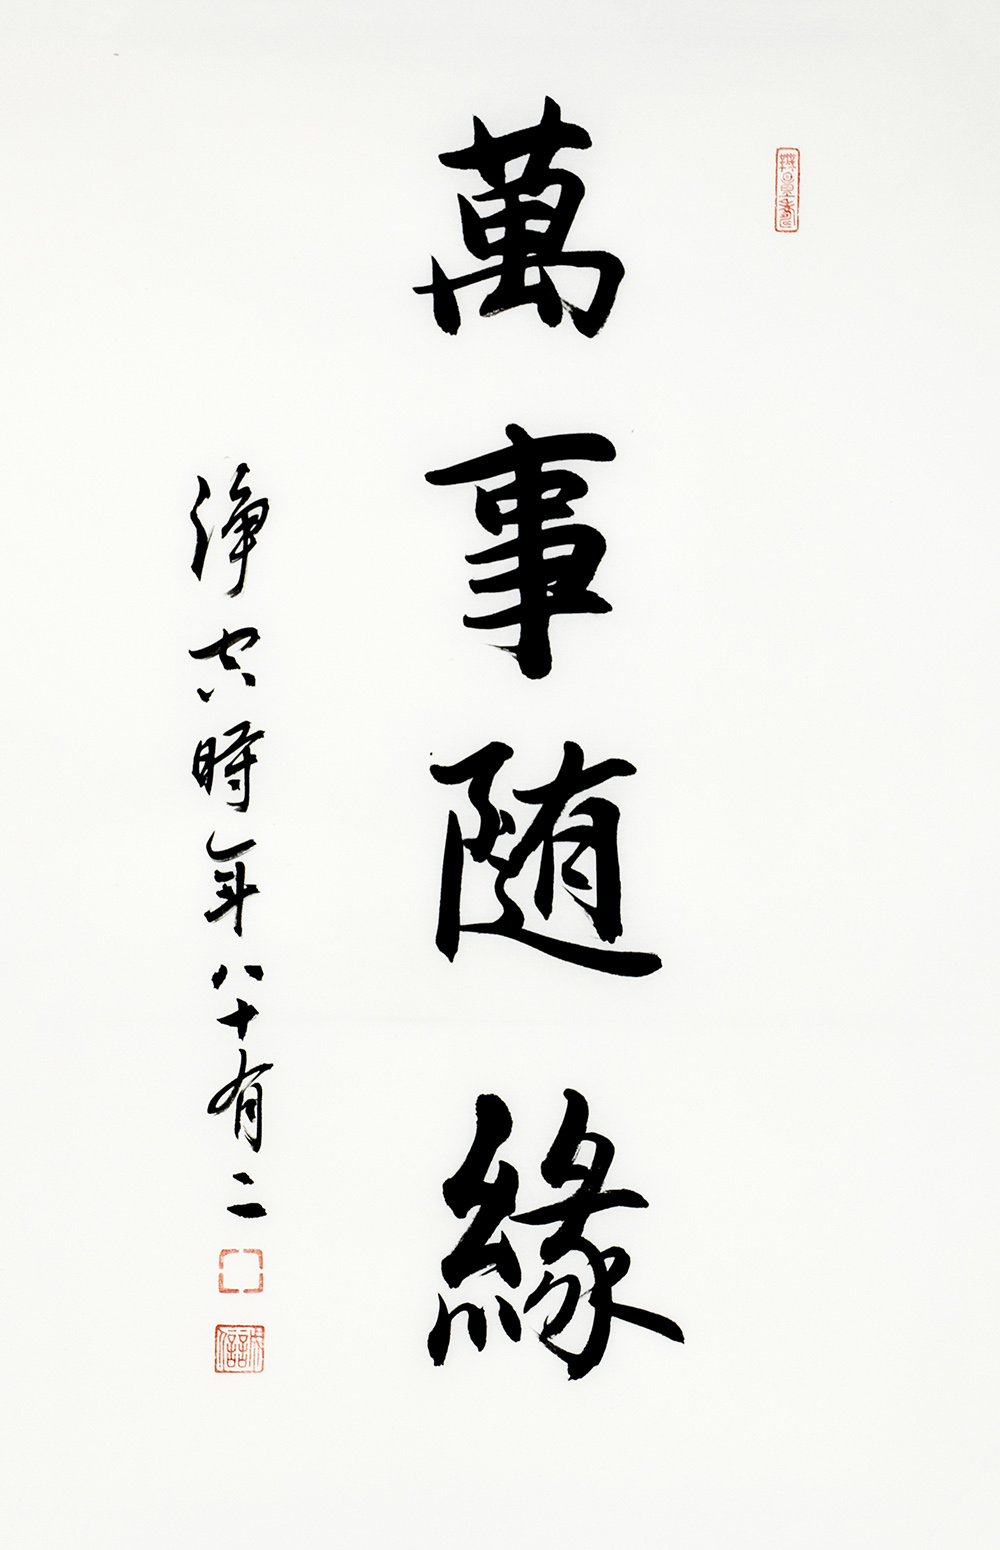 無量壽
萬事隨緣
淨空時年八十有二